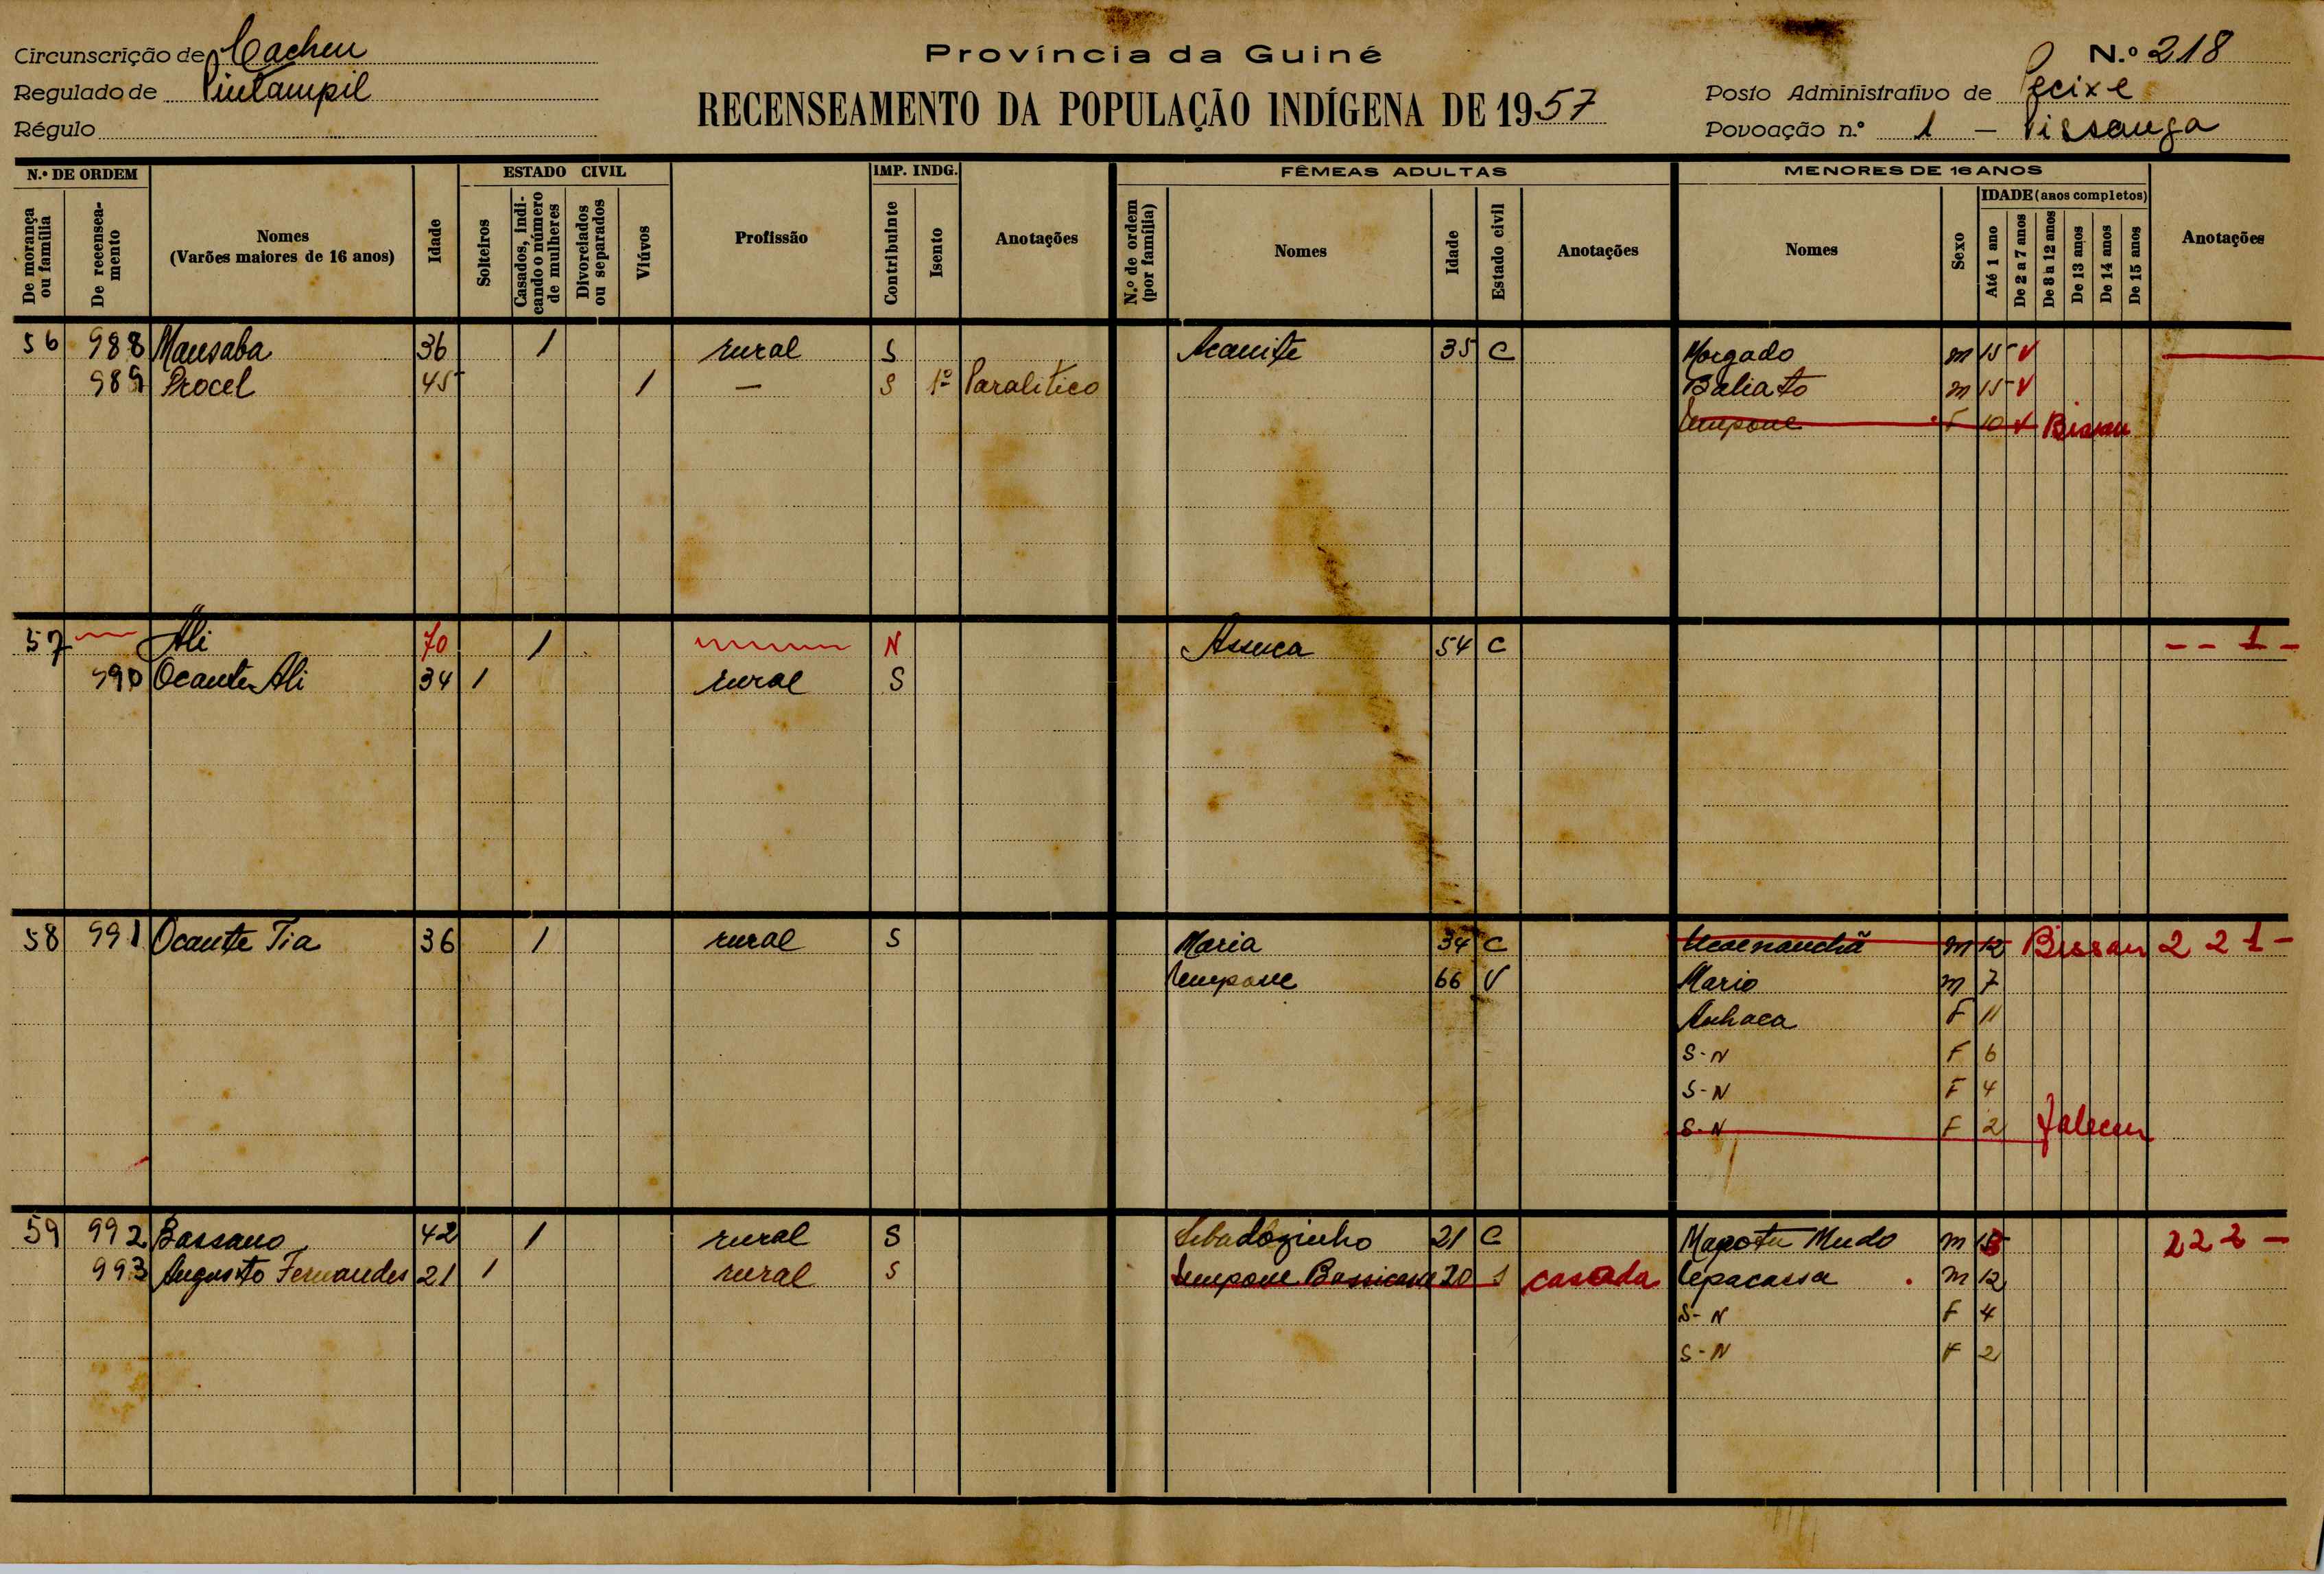 Circunscrição de Cacheu
Província da Guiné
N.º 218
Regulado de Pintampil
RECENSEAMENTO DA POPULAÇÃO INDÍGENA DE 1957
Posto Administrativo de Pecixe
Régulo
Povoação n.º 1 - Pissanga
N.º DE ORDEM
ESTADO CIVIL
IMP. INDG.
FÊMEAS ADULTAS
MENORES DE 16 ANOS
IDADE (anos completos)
De morança ou família
De recenseamento
Nomes
(Varões maiores de 16 anos)
Idade
Solteiros
Casados, indicando o número de mulheres
Divorciados ou separados
Viúvos
Profissão
Contribuinte
Isento
Anotações
N.º de ordem (por família)
Nomes
Idade
Estado civil
Anotações
Nomes
Sexo
Até 1 ano
De 2 a 7 anos
De 8 a 12 anos
De 13 anos
De 14 anos
De 15 anos
Anotações
56 988 Mansaba 36 1 rural S Acanite 35 C Morgado m 15 V
989 Procel 45 1 — S 1º Paralitico Baliato m 15 V
F 10 V Bissau
57 Ali 70 1 N Assuca 54 C - - 1 -
990 Ocante Ali 34 1 rural S
58 991 Ocante Tia 36 1 rural S Maria 34 C m 12 Bissau 2 2 1 -
66 V Mario m 7
F 11
S-N F 6
S-N F 4
S-N F 2 faleceu
59 992 Bassano 42 1 rural S 21 C Mapotu Mudo m 2 2 2 -
993 Augusto Fernandes 21 1 rural S 20 S casada m 12
S-N F 4
S-N F 2